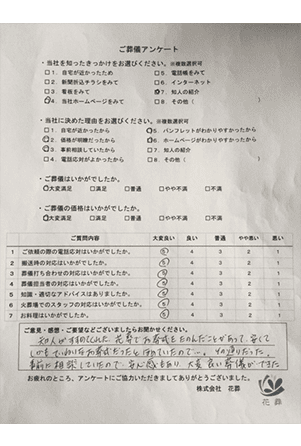 ご葬儀アンケート
・当社を知ったきっかけをお選びください。※複数選択可
□1. 自宅が近かったため □5. 電話帳をみて
□2. 新聞折込チラシをみて □6. インターネット
□3. 看板をみて □7. 知人の紹介
□4. 当社ホームページをみて □8. その他( )
・当社に決めた理由をお選びください。※複数選択可
□1. 自宅が近かったから □5. パンフレットがわかりやすかったから
□2. 価格が明瞭だったから □6. ホームページがわかりやすかったから
□3. 事前相談していたから □7. 知人の紹介
□4. 電話応対がよかったから □8. その他( )
・ご葬儀はいかがでしたか。
□大変満足 □満足 □普通 □やや不満 □不満
・ご葬儀の価格はいかがでしたか。
□大変満足 □満足 □普通 □やや不満 □不満
ご質問内容 大変良い 良い 普通 やや悪い 悪い
1 ご依頼の際の電話応対はいかがでしたか。 5 4 3 2 1
2 搬送時の対応はいかがでしたか。 5 4 3 2 1
3 葬儀打ち合わせの対応はいかがでしたか。 5 4 3 2 1
4 葬儀担当者の対応はいかがでしたか。 5 4 3 2 1
5 知識・適切なアドバイスはありましたか。 5 4 3 2 1
6 火葬場でのスタッフの対応はいかがでしたか。 5 4 3 2 1
7 お料理はいかがでしたか。 5 4 3 2 1
ご意見・感想・ご要望などございましたらお聞かせください。
知人がすすめてくれた、花葬でお葬式をたのんだことがあって、安くて
しかもていねいなお葬式だったと聞いていたので…。その通りだった。
事前に相談していたので、安心感もあり、大変良い葬儀ができた
お疲れのところ、アンケートにご協力いただきましてありがとうございました。
株式会社 花葬
花葬